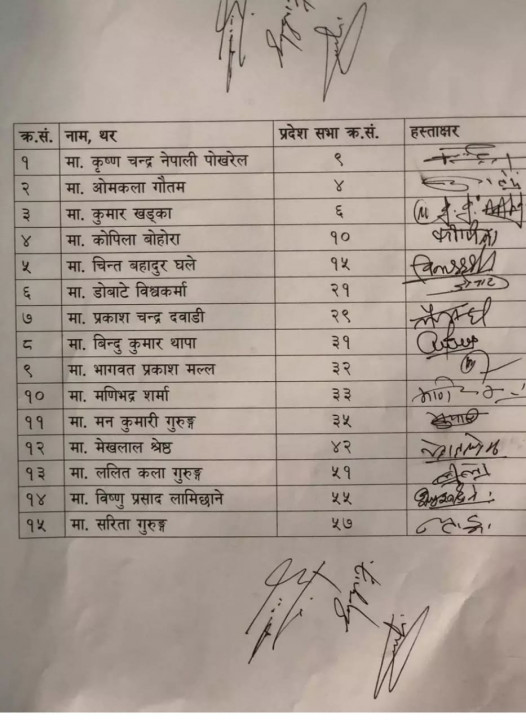 क्र.सं. नाम, थर प्रदेश सभा क्र.सं. हस्ताक्षर
१ मा. कृष्ण चन्द्र नेपाली पोखरेल ९
२ मा. ओमकला गौतम ४
३ मा. कुमार खड्का ६
४ मा. कोपिला बोहोरा १०
५ मा. चिन्त बहादुर घले १५
६ मा. डोबाटे विश्वकर्मा २१
७ मा. प्रकाश चन्द्र दवाडी २९
८ मा. विन्दु कुमार थापा ३१
९ मा. भागवत प्रकाश मल्ल ३२
१० मा. मणिभद्र शर्मा ३३
११ मा. मन कुमारी गुरुङ्ग ३५
१२ मा. मेखलाल श्रेष्ठ ४२
१३ मा. ललित कला गुरुङ्ग ५१
१४ मा. विष्णु प्रसाद लामिछाने ५५
१५ मा. सरिता गुरुङ्ग ५७